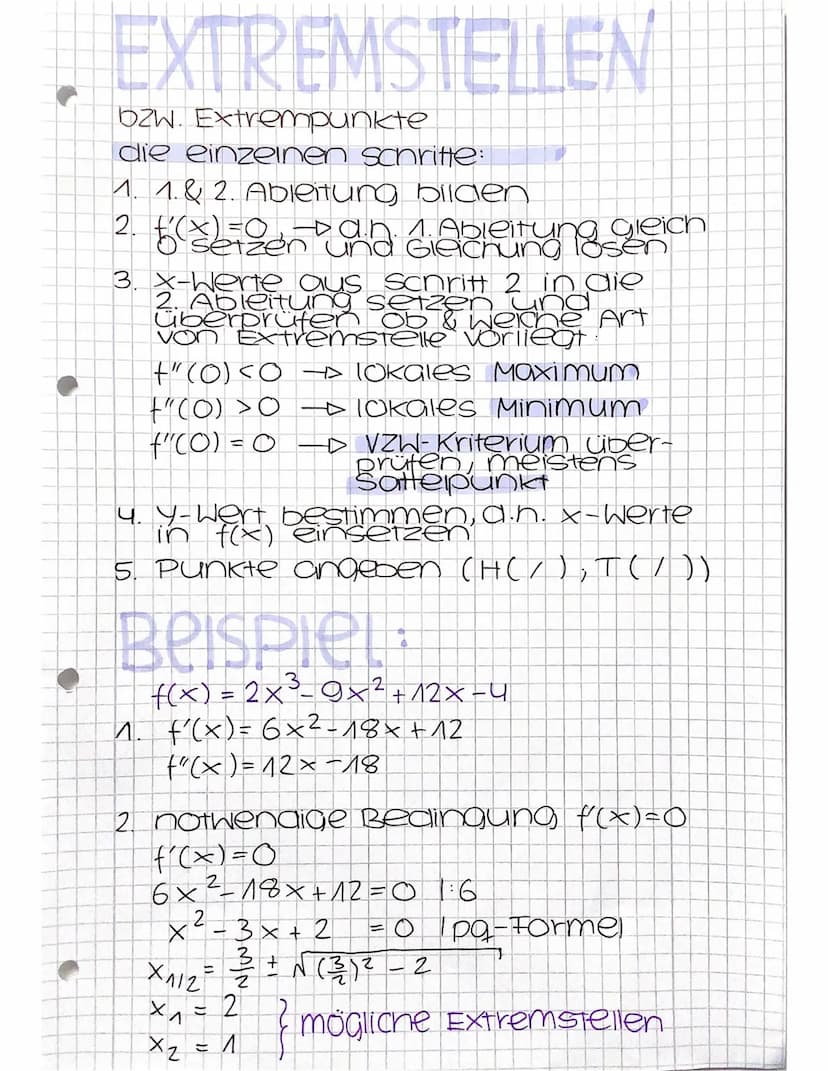 EXTREMSTELLEN
bzw. Extrempunkte
die einzelnen Schritte:
1. 1. & 2. Ableitung bilden
2. f'(x)=0, → d.h. 1. Ableitung gleich
0 setzen und Gleichung lösen
3. x-Werte aus Schritt 2 in die
2. Ableitung setzen und
überprüfen ob & welche Art
von Extremstelle vorliegt:
f"(0)<0 → lokales Maximum
f"(0) >0 → lokales Minimum
f"(0) = 0 → VZW-Kriterium über-
prüfen, meistens
Sattelpunkt
4. y-Wert bestimmen, d.h. x-Werte
in f(x) einsetzen
5. Punkte angeben (H( / ), T( / ))
Beispiel:
f(x) = 2x³-9x²+12x-4
1. f'(x)= 6x²-18x+12
f"(x)=12x-18
2. notwendige Bedingung f'(x)=0
f'(x)=0
6x²-18x+12=0 |:6
x²-3x+2 =0 |pq-Formel
x₁/₂ = 3/2 ± √(3/2)² - 2
x₁ = 2
x₂ = 1 } mögliche Extremstellen